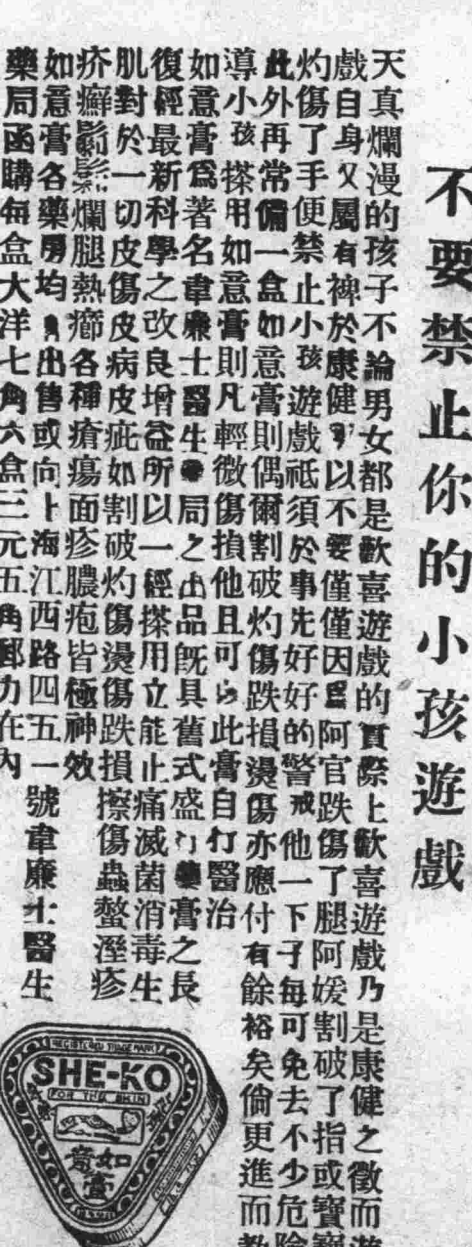 不要禁止你的小孩遊戲
天真爛漫的孩子不論男女都是歡喜遊戲的實際上歡喜遊戲乃是康健之徵而遊
戲自身又屬有裨於康健 以不要僅僅因爲阿官跌傷了腿阿媛割破了指或寶寶
灼傷了手便禁止小孩遊戲祗須於事先好好的警戒他一下子每可免去不少危險
此外再常備一盒如意膏則偶爾割破灼傷跌損燙傷亦應付有餘裕矣倘更進而教
導小孩搽用如意膏則凡輕微傷損他且可以此膏自行醫治
如意膏爲著名韋廉士醫生藥局之出品旣具舊式盛行藥膏之長
復經最新科學之改良增益所以一經搽用立能止痛滅菌消毒生
肌對於一切皮傷皮病皮疵如割破灼傷燙傷跌損擦傷蟲螫溼疹
疥癬鬎鬁爛腿熱癤各種瘡瘍面疹膿疱皆極神效
如意膏各藥房均有出售或向上海江西路四五一號韋廉士醫生
藥局函購每盒大洋七角六盒三元五角郵力在內
REGISTERED TRADE MARK
SHE-KO
FOR THE SKIN
如意膏